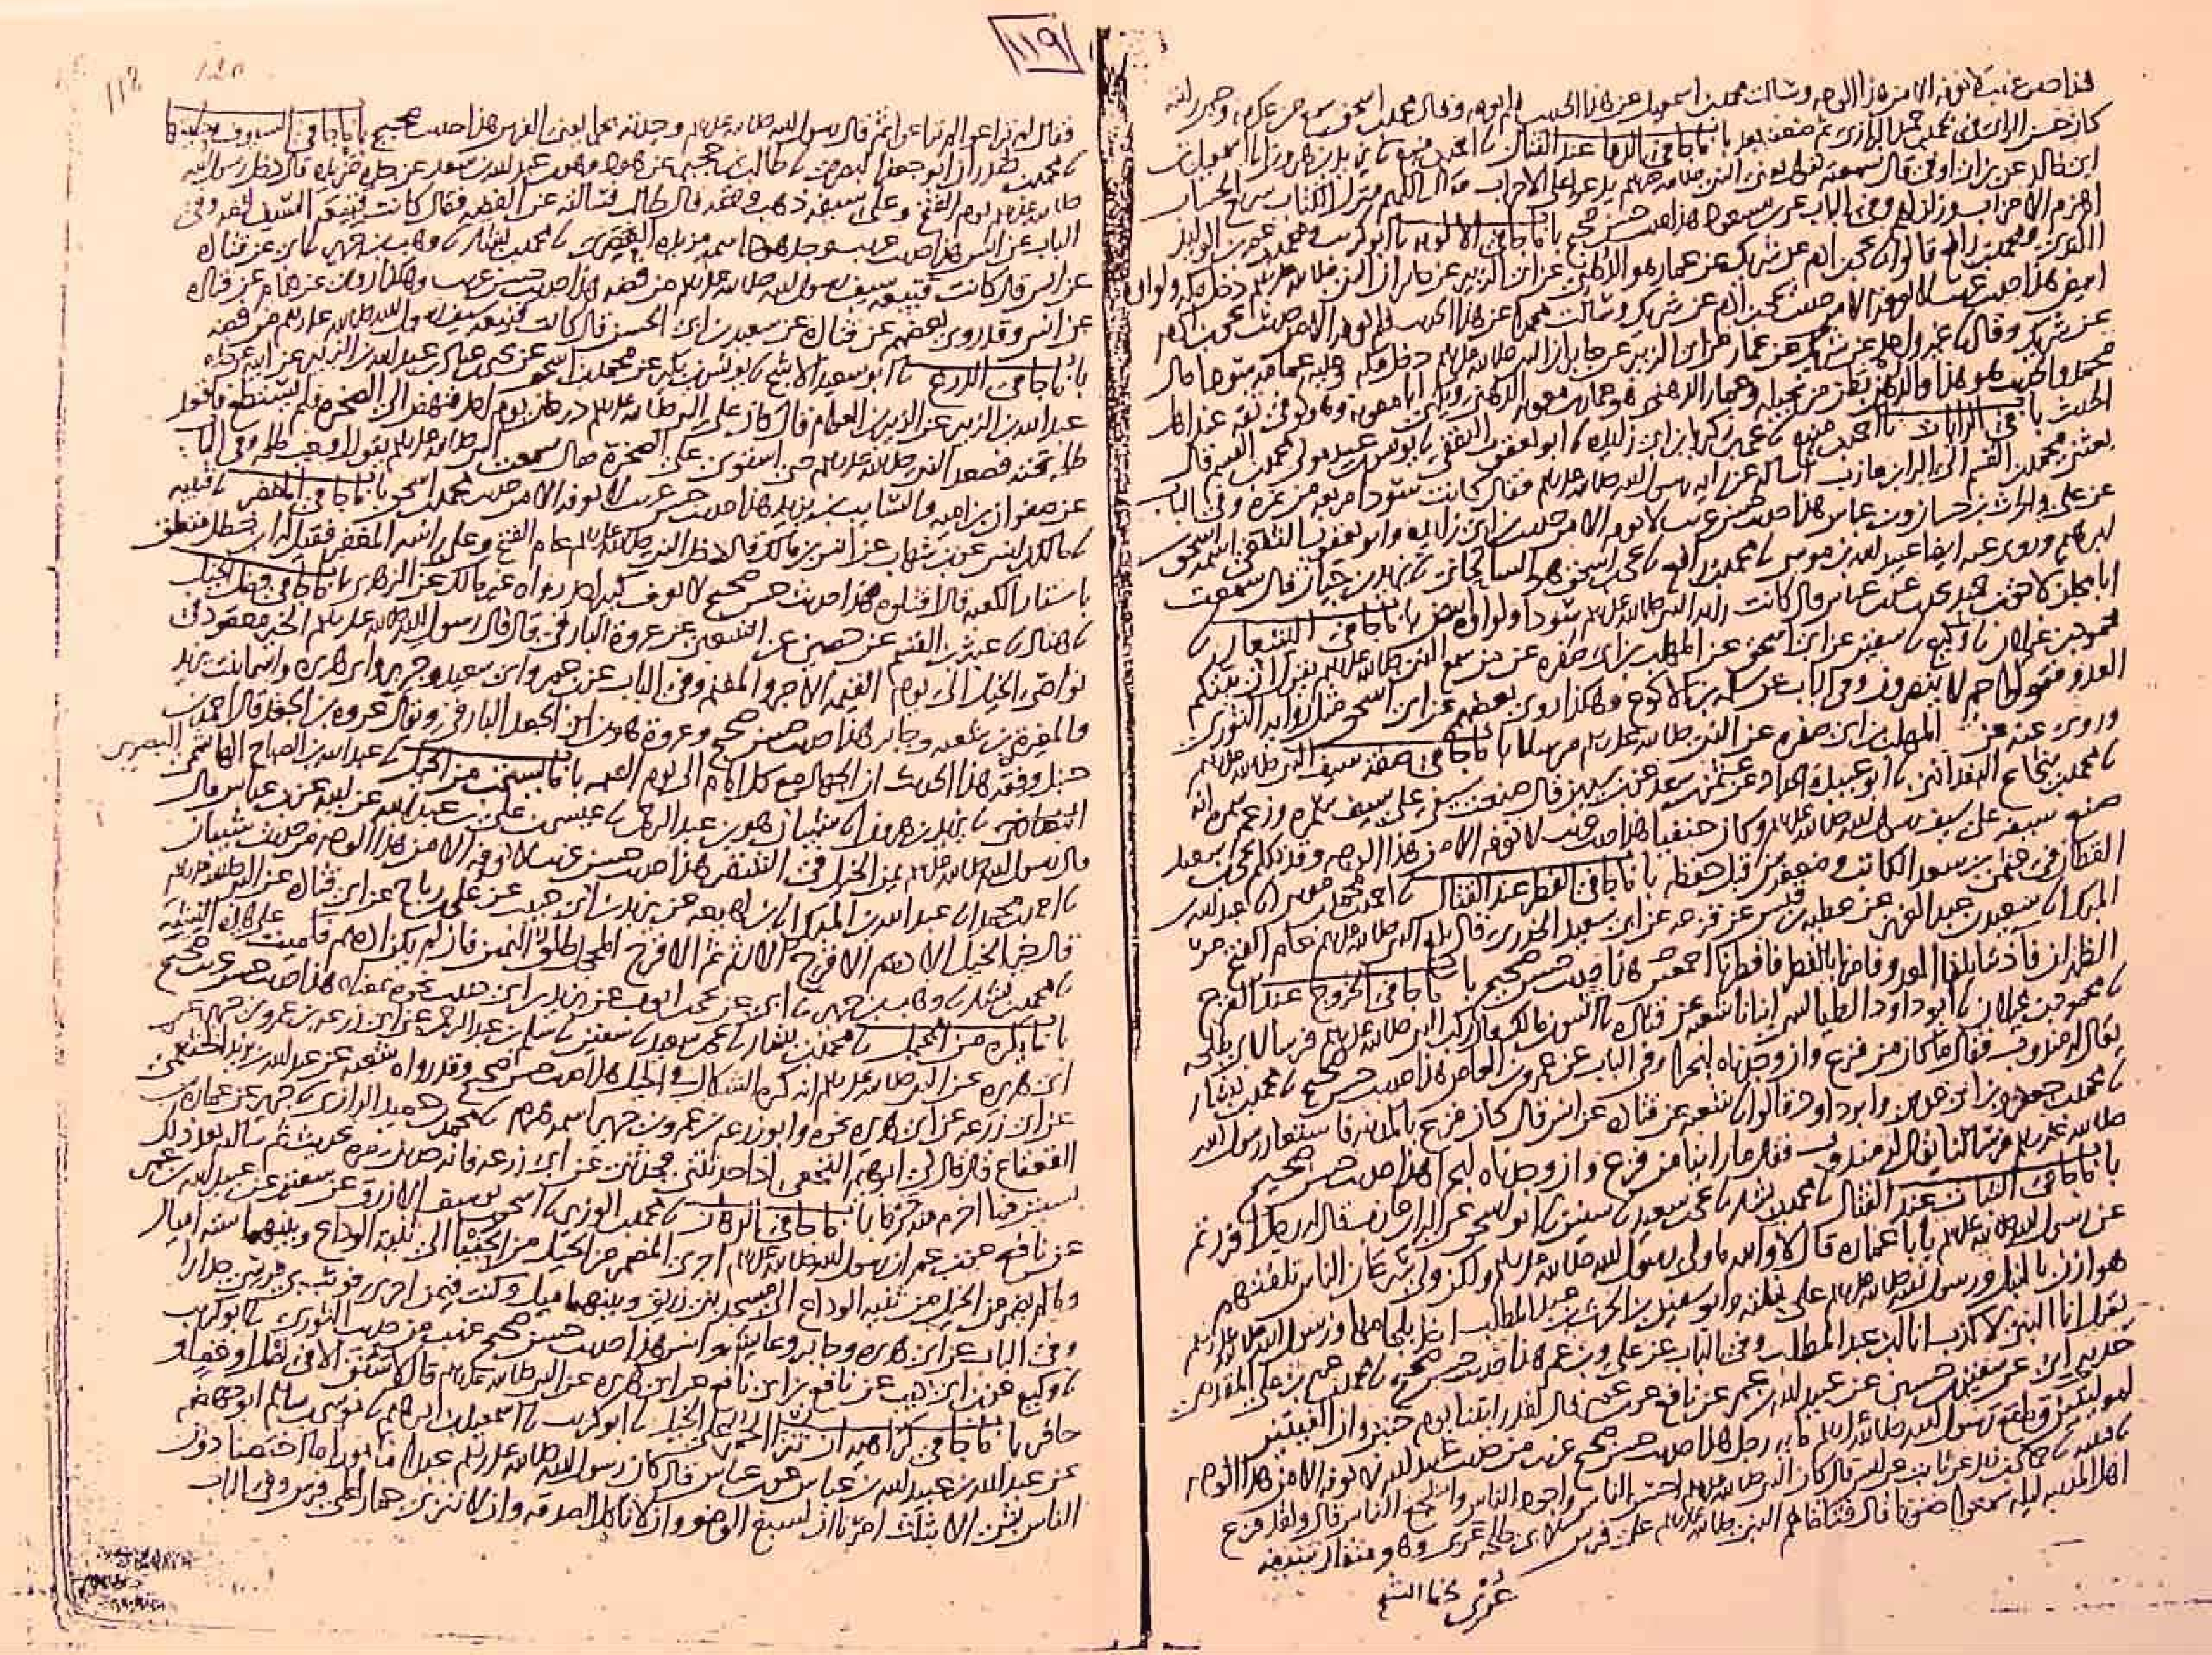 هذا حديث غريب لا نعرفه الا من هذا الوجه وسالت محمد بن اسمعيل عن هذا الحديث فلم يعرفه وقال محمد بن اسحق سمع من عكرمة وحين رايته
كان حسن الراي في محمد بن حميد الرازي ثم ضعفه بعد باب ما جا في الدعا عند القتال نا احمد بن منيع نا يزيد بن هرون انا اسمعيل بن
ابي خالد عن ابن ابي اوفى قال سمعته يقول يعني النبي صلى الله عليه وسلم يدعو على الاحزاب فقال اللهم منزل الكتاب سريع الحساب
اهزم الاحزاب وزلزلهم وفي الباب عن ابن مسعود هذا حديث حسن صحيح باب ما جا في الالوية نا ابو كريب ومحمد بن عمر بن الوليد
الكندي ومحمد بن رافع قالوا نا يحيى بن ادم عن شريك عن عمار هو الدهني عن ابي الزبير عن جابر ان النبي صلى الله عليه وسلم دخل مكة ولواوه
ابيض هذا حديث غريب لا نعرفه الا من حديث يحيى بن ادم عن شريك وسالت محمدا عن هذا الحديث فلم يعرفه الا من حديث يحيى بن ادم
عن شريك وقال نا غير واحد عن شريك عن عمار عن ابي الزبير عن جابر ان النبي صلى الله عليه وسلم دخل مكة وعليه عمامة سودا قال
محمد والحديث هو هذا والدهن بطن من بجيلة وعمار الدهني هو عمار بن معوية الدهني ويكنى ابا معوية وهو كوفي ثقة عند اهل
الحديث باب في الرايات نا احمد بن منيع نا يحيى بن زكريا بن ابي زايدة نا ابو يعقوب الثقفي نا يونس بن عبيد مولى محمد بن القسم قال
بعثني محمد بن القسم الى البرا بن عازب اساله عن راية رسول الله صلى الله عليه وسلم فقال كانت سودا مربعة من نمرة وفي الباب
عن علي والحارث بن حسان وابن عباس هذا حديث حسن غريب لا نعرفه الا من حديث ابن ابي زايدة وابو يعقوب الثقفي اسمه اسحق
بن ابرهيم وروى عنه ايضا عبيد الله بن موسى نا محمد بن رافع نا يحيى بن اسحق هو السالحاني نا يزيد بن حيان قال سمعت
ابا مجلز لاحق بن حميد يحدث عن ابن عباس قال كانت راية النبي صلى الله عليه وسلم سودا ولواوه ابيض باب ما جا في الشعار نا
محمود بن غيلان نا وكيع نا سفين عن ابي اسحق عن المهلب بن ابي صفرة عن من سمع النبي صلى الله عليه وسلم يقول ان بيتكم
العدو فقولوا حم لا ينصرون وفي الباب عن سلمة بن الاكوع وهكذا روى بعضهم عن ابي اسحق مثل رواية الثوري
وروى عنه عن المهلب بن ابي صفرة عن النبي صلى الله عليه وسلم مرسلا باب ما جا في صفة سيف النبي صلى الله عليه وسلم
نا محمد بن شجاع البغدادي نا ابو عبيدة الحداد عن عثمن بن سعد عن ابن سيرين قال صنعت سيفي على سيف سمرة وزعم سمرة انه
صنع سيفه على سيف رسول الله صلى الله عليه وسلم وكان حنفيا هذا حديث غريب لا نعرفه الا من هذا الوجه وقد تكلم يحيى بن سعيد
القطان في عثمن بن سعد الكاتب وضعفه من قبل حفظه باب ما جا في الفطر عند القتال نا احمد بن محمد بن موسى انا عبد الله بن
المبارك انا سعيد بن عبد العزيز عن عطية بن قيس عن قزعة عن ابي سعيد الخدري قال لما بلغ النبي صلى الله عليه وسلم عام الفتح مر
الظهران فاذننا بلقا العدو فامرنا بالفطر فافطرنا اجمعين هذا حديث حسن صحيح باب ما جا في الخروج عند الفزع
نا محمود بن غيلان نا ابو داود الطيالسي انبانا شعبة عن قتادة نا انس بن مالك قال ركب النبي صلى الله عليه وسلم فرسا لابي طلحة
يقال له مندوب فقال ما كان من فزع وان وجدناه لبحرا وفي الباب عن عمرو بن العاص هذا حديث حسن صحيح نا محمد بن بشار
نا محمد بن جعفر وابن ابي عدي وابو داود قالوا نا شعبة عن قتادة عن انس قال كان فزع بالمدينة فاستعار رسول الله
صلى الله عليه وسلم فرسا لنا يقال له مندوب فقال ما راينا من فزع وان وجدناه لبحرا هذا حديث حسن صحيح
باب ما جا في الثبات عند القتال نا محمد بن بشار نا يحيى بن سعيد نا سفين نا ابو اسحق عن البرا بن عازب قال قال له رجل افررتم
عن رسول الله صلى الله عليه وسلم يا ابا عمارة قال لا والله ما ولى رسول الله صلى الله عليه وسلم ولكن ولى سرعان الناس تلقتهم
هوازن بالنبل ورسول الله صلى الله عليه وسلم على بغلته وابو سفين بن الحرث بن عبد المطلب اخذ بلجامها ورسول الله صلى الله عليه وسلم
يقول انا النبي لا كذب انا ابن عبد المطلب وفي الباب عن علي وابن عمر هذا حديث حسن صحيح نا محمد بن عمر بن علي المقدمي
حدثني ابي عن سفين بن حسين عن عبيد الله بن عمر عن نافع عن ابن عمر قال لقد رايتنا يوم حنين وان الفئتين
لموليتين وما مع رسول الله صلى الله عليه وسلم مائة رجل هذا حديث حسن صحيح غريب من حديث عبيد الله لا نعرفه الا من هذا الوجه
نا قتيبة نا حماد بن زيد عن ثابت عن انس قال كان النبي صلى الله عليه وسلم احسن الناس واجود الناس واشجع الناس قال ولقد فزع
اهل المدينة ليلة سمعوا صوتا قال فتلقاهم النبي صلى الله عليه وسلم على فرس لابي طلحة عري وهو متقلد سيفه
١١٩
فقال لم تراعوا لم تراعوا ثم قال رسول الله صلى الله عليه وسلم وجدته بحرا يعني الفرس هذا حديث صحيح باب ما جا في السيوف وحليتها
نا محمد بن صدران ابو جعفر البصري نا طالب بن حجير عن هود وهو ابن عبد الله بن سعد عن جده مزيدة قال دخل رسول الله
صلى الله عليه وسلم يوم الفتح وعلى سيفه ذهب وفضة قال طالب فسالته عن الفضة فقال كانت قبيعة السيف فضة وفي
الباب عن انس هذا حديث غريب وجد هود اسمه مزيدة العصري نا محمد بن بشار نا وهب بن جرير نا ابي عن قتادة
عن انس قال كانت قبيعة سيف رسول الله صلى الله عليه وسلم من فضة هذا حديث حسن غريب وهكذا روي عن همام عن قتادة
عن انس وقد روى بعضهم عن قتادة عن سعيد بن ابي الحسن قال كانت قبيعة سيف رسول الله صلى الله عليه وسلم من فضة
باب ما جا في الدرع نا ابو سعيد الاشج نا يونس بن بكير عن محمد بن اسحق عن يحيى بن عباد بن عبد الله بن الزبير عن ابيه عن جده
عبد الله بن الزبير عن الزبير بن العوام قال كان على النبي صلى الله عليه وسلم درعان يوم احد فنهض الى الصخرة فلم يستطع فاقعد
طلحة تحته فصعد النبي صلى الله عليه وسلم حتى استوى على الصخرة قال سمعت النبي صلى الله عليه وسلم يقول اوجب طلحة وفي الباب
عن صفوان بن امية والسايب بن يزيد هذا حديث حسن غريب لا نعرفه الا من حديث محمد بن اسحق باب ما جا في المغفر نا قتيبة
نا مالك بن انس عن ابن شهاب عن انس بن مالك قال دخل النبي صلى الله عليه وسلم عام الفتح وعلى راسه المغفر فقيل له ابن خطل متعلق
باستار الكعبة قال اقتلوه هذا حديث حسن صحيح لا نعرف كبير احد رواه غير مالك عن الزهري باب ما جا في فضل الخيل
نا هناد نا عبثر بن القسم عن حصين عن الشعبي عن عروة البارقي قال قال رسول الله صلى الله عليه وسلم الخير معقود في
نواصي الخيل الى يوم القيمة الاجر والمغنم وفي الباب عن ابن عمر وابي سعيد وجرير وابي هريرة واسما بنت يزيد
والمغيرة بن شعبة وجابر هذا حديث حسن صحيح وعروة هو ابن ابي الجعد البارقي ويقال عروة بن الجعد قال احمد بن
حنبل وفقه هذا الحديث ان الجهاد مع كل امام الى يوم القيمة باب ما يستحب من الخيل نا عبد الله بن الصباح الهاشمي البصري
نا يزيد بن هرون انا شيبان هو ابن عبد الرحمن نا عيسى بن علي بن عبد الله عن ابيه عن ابن عباس قال
قال رسول الله صلى الله عليه وسلم يمن الخيل في الشقر هذا حديث حسن غريب لا نعرفه الا من هذا الوجه من حديث شيبان
نا احمد بن محمد انا عبد الله بن المبارك انا ابن لهيعة عن يزيد بن ابي حبيب عن علي بن رباح عن ابي قتادة عن النبي صلى الله عليه وسلم
قال خير الخيل الادهم الاقرح الارثم ثم الاقرح المحجل طلق اليمين فان لم يكن ادهم فكميت على هذه الشية
نا محمد بن بشار نا وهب بن جرير نا ابي عن يحيى بن ايوب عن يزيد بن ابي حبيب نحوه بمعناه هذا حديث حسن غريب صحيح
باب ما يكره من الخيل نا محمد بن بشار نا يحيى بن سعيد نا سفين نا سلم بن عبد الرحمن عن ابي زرعة بن عمرو بن جرير عن
ابي هريرة عن النبي صلى الله عليه وسلم انه كره الشكال في الخيل هذا حديث حسن صحيح وقد رواه شعبة عن عبد الله بن يزيد الخثعمي
عن ابي زرعة عن ابي هريرة نحوه وابو زرعة بن عمرو بن جرير اسمه هرم نا محمد بن حميد الرازي نا جرير عن عمارة بن
القعقاع قال قال لي ابرهيم النخعي اذا حدثتني فحدثني عن ابي زرعة فانه حدثني مرة بحديث ثم سالته بعد ذلك
بسنين فما اخرم منه حرفا باب ما جا في الرهان نا محمد بن الوزير نا اسحق بن يوسف الازرق عن سفين عن عبيد الله بن عمر
عن نافع عن ابن عمر ان رسول الله صلى الله عليه وسلم اجرى المضمر من الخيل من الحفيا الى ثنية الوداع وبينهما ستة اميال
وما لم يضمر من الخيل من ثنية الوداع الى مسجد بني زريق وبينهما ميل وكنت فيمن اجرى فوثب بي فرسي جدارا
وفي الباب عن ابي هريرة وجابر وعايشة وانس هذا حديث حسن صحيح غريب من حديث الثوري نا ابو كريب
نا وكيع عن ابن ابي ذيب عن نافع بن ابي نافع عن ابي هريرة عن النبي صلى الله عليه وسلم قال لا سبق الا في نصل او خف او
حافر باب ما جا في كراهية ان تنزا الحمر على الخيل نا ابو كريب نا اسمعيل بن ابرهيم نا موسى بن سالم ابو جهضم
عن عبد الله بن عبيد الله بن عباس عن ابن عباس قال كان رسول الله صلى الله عليه وسلم عبدا مامورا ما اختصنا دون
الناس بشي الا بثلث امرنا ان نسبغ الوضو وان لا ناكل الصدقة وان لا ننزي حمارا على فرس وفي الباب